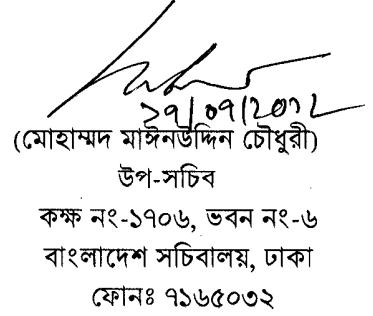 ২৭/০৭/২০১২
(মোহাম্মদ মাঈনউদ্দিন চৌধুরী)
উপ-সচিব
কক্ষ নং-১৭০৬, ভবন নং-৬
বাংলাদেশ সচিবালয়, ঢাকা
ফোনঃ ৭১৬৫০৩২